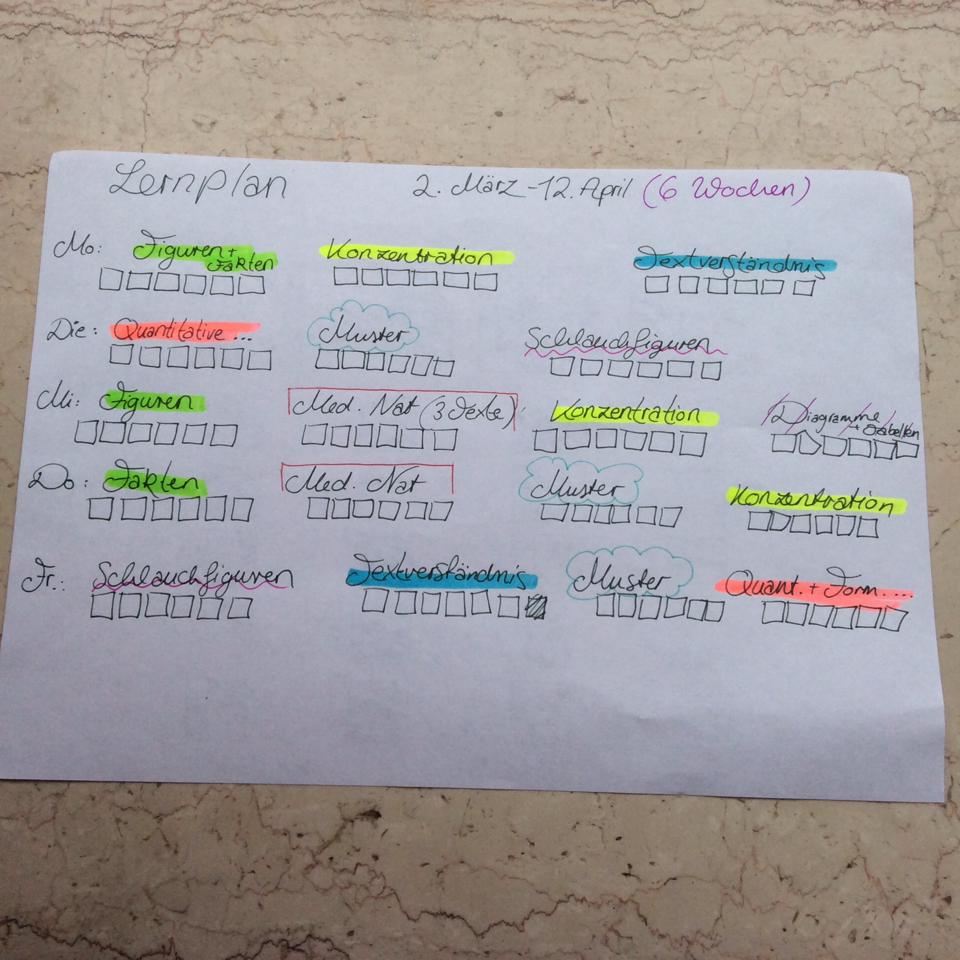 Lernplan 2. März - 12. April (6 Wochen)
Mo: Figuren + Fakten Konzentration Textverständnis
Die: Quantitative ... Muster Schlauchfiguren
Mi: Figuren Med. Nat (3 Texte) Konzentration Diagramme + Tabellen
Do: Fakten Med. Nat Muster Konzentration
Fr.: Schlauchfiguren Textverständnis Muster Quant. + Form....